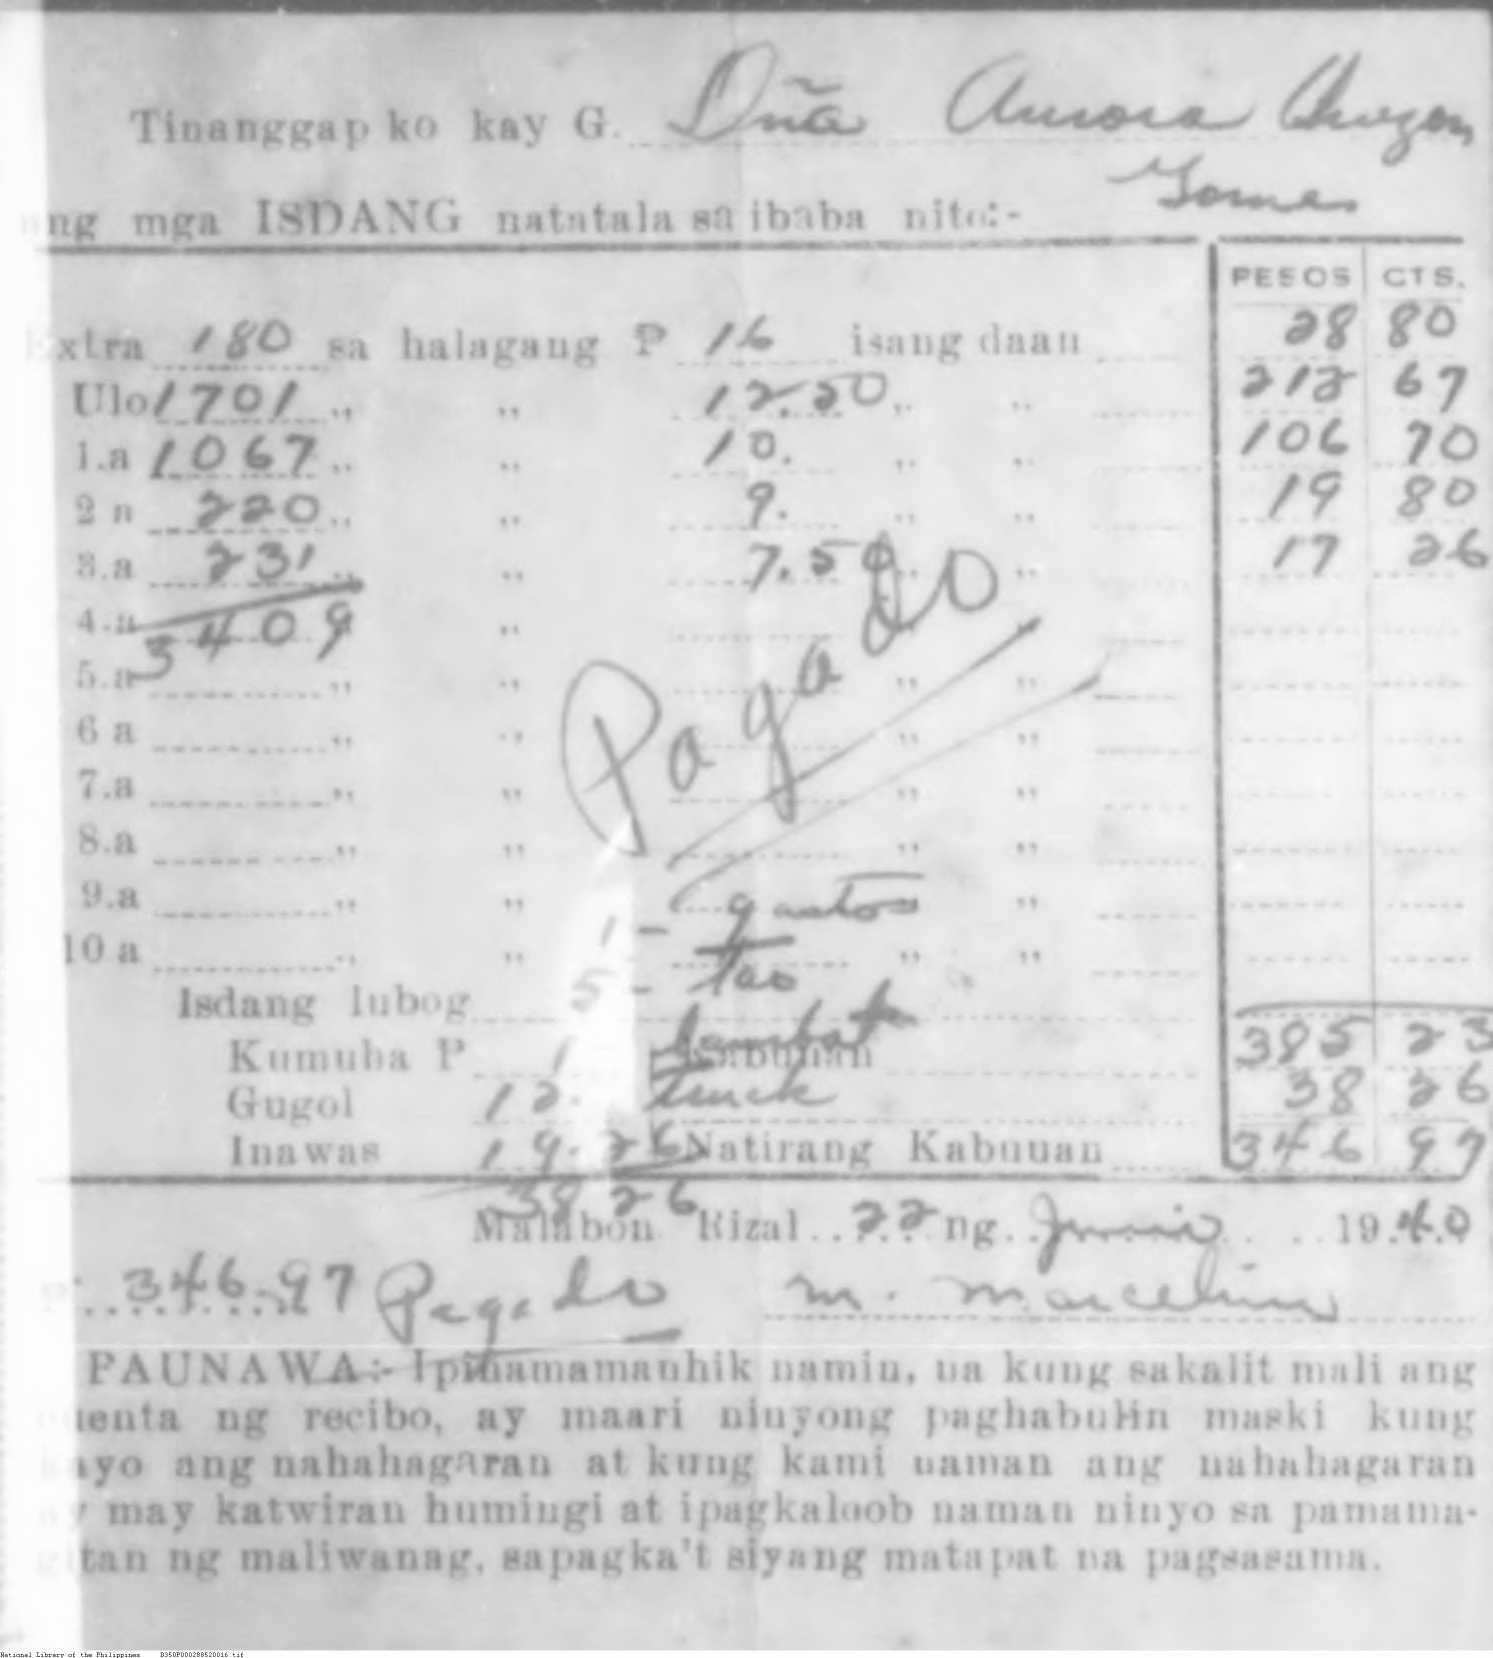 Tinanggap ko kay G. Dña Aurora
Gomes
ang mga ISDANG natatala sa ibaba nito:-
PESOS CTS.
Extra 180 sa halagang ₱ 16 isang daan 28 80
Ulo 1701 ,, ,, 12.50 ,, ,, 212 67
1.a 1067 ,, ,, 10. ,, ,, 106 70
2 a 220 ,, ,, 9. ,, ,, 19 80
3.a 231 ,, ,, 7.50 ,, ,, 17 26
4.a 3409 ,, ,, ,,
5.a ,, ,, ,, ,,
6 a ,, ,, ,, ,,
7.a ,, ,, ,, ,,
8.a ,, ,, ,, ,,
Pagado
9.a ,, ,, ,,
1 - gastos
10 a ,, ,, ,, ,,
5 - tao
Isdang lubog
Kumuha P 1 lambat Kabuuan 385 23
Gugol 12. truck 38 26
Inawas 19.26 Natirang Kabuuan 346 97
38 26
Malabon Rizal 22 ng Junio 1940
P 346.97 Pagado M. Marcelino
PAUNAWA:- Ipinamamanhik namin, na kung sakalit mali ang
cuenta ng recibo, ay maari ninyong paghabulin maski kung
kayo ang nahahagaran at kung kami naman ang nahahagaran
ay may katwiran humingi at ipagkaloob naman ninyo sa pamama-
gitan ng maliwanag, sapagka't siyang matapat na pagsasama.
National Library of the Philippines D350P000288520016.tif